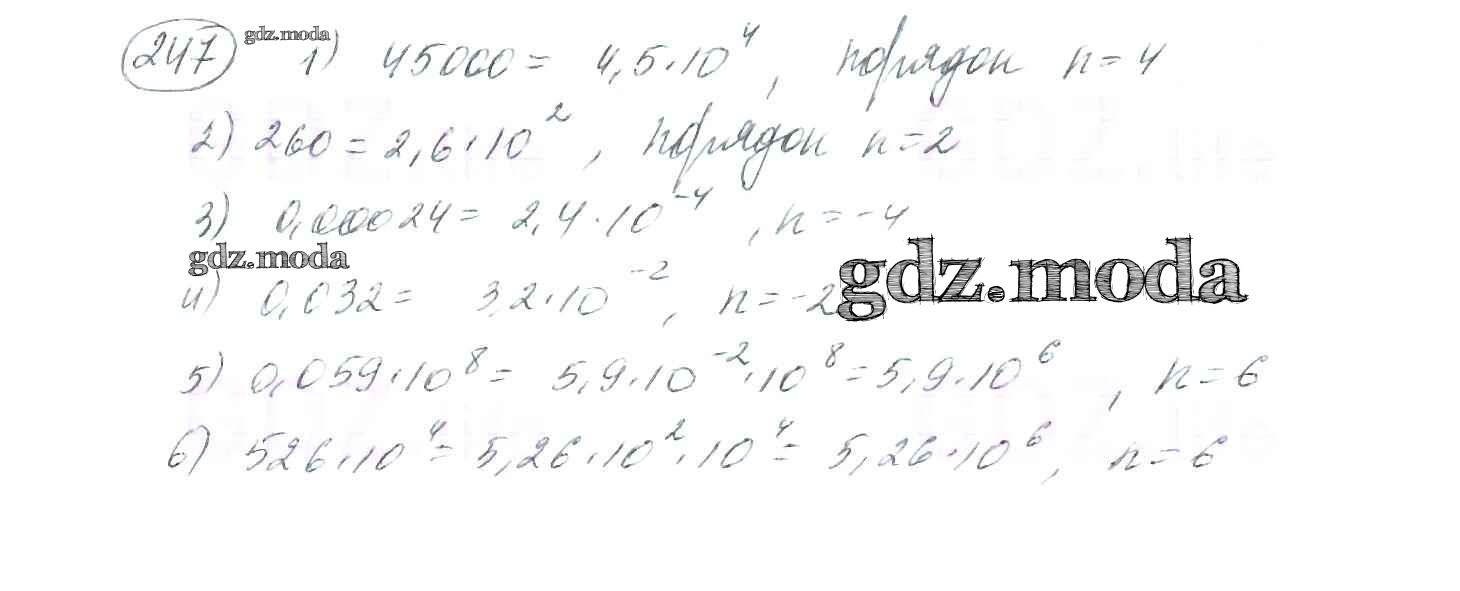 247 gdz.moda 1) 45000 = 4,5·10⁴, порядок n = 4
2) 260 = 2,6·10², порядок n = 2
3) 0,00024 = 2,4·10⁻⁴, n = -4
gdz.moda
gdz.moda
4) 0,032 = 3,2·10⁻², n = -2
5) 0,059·10⁸ = 5,9·10⁻²·10⁸ = 5,9·10⁶, n = 6
6) 526·10⁴ = 5,26·10²·10⁴ = 5,26·10⁶, n = 6